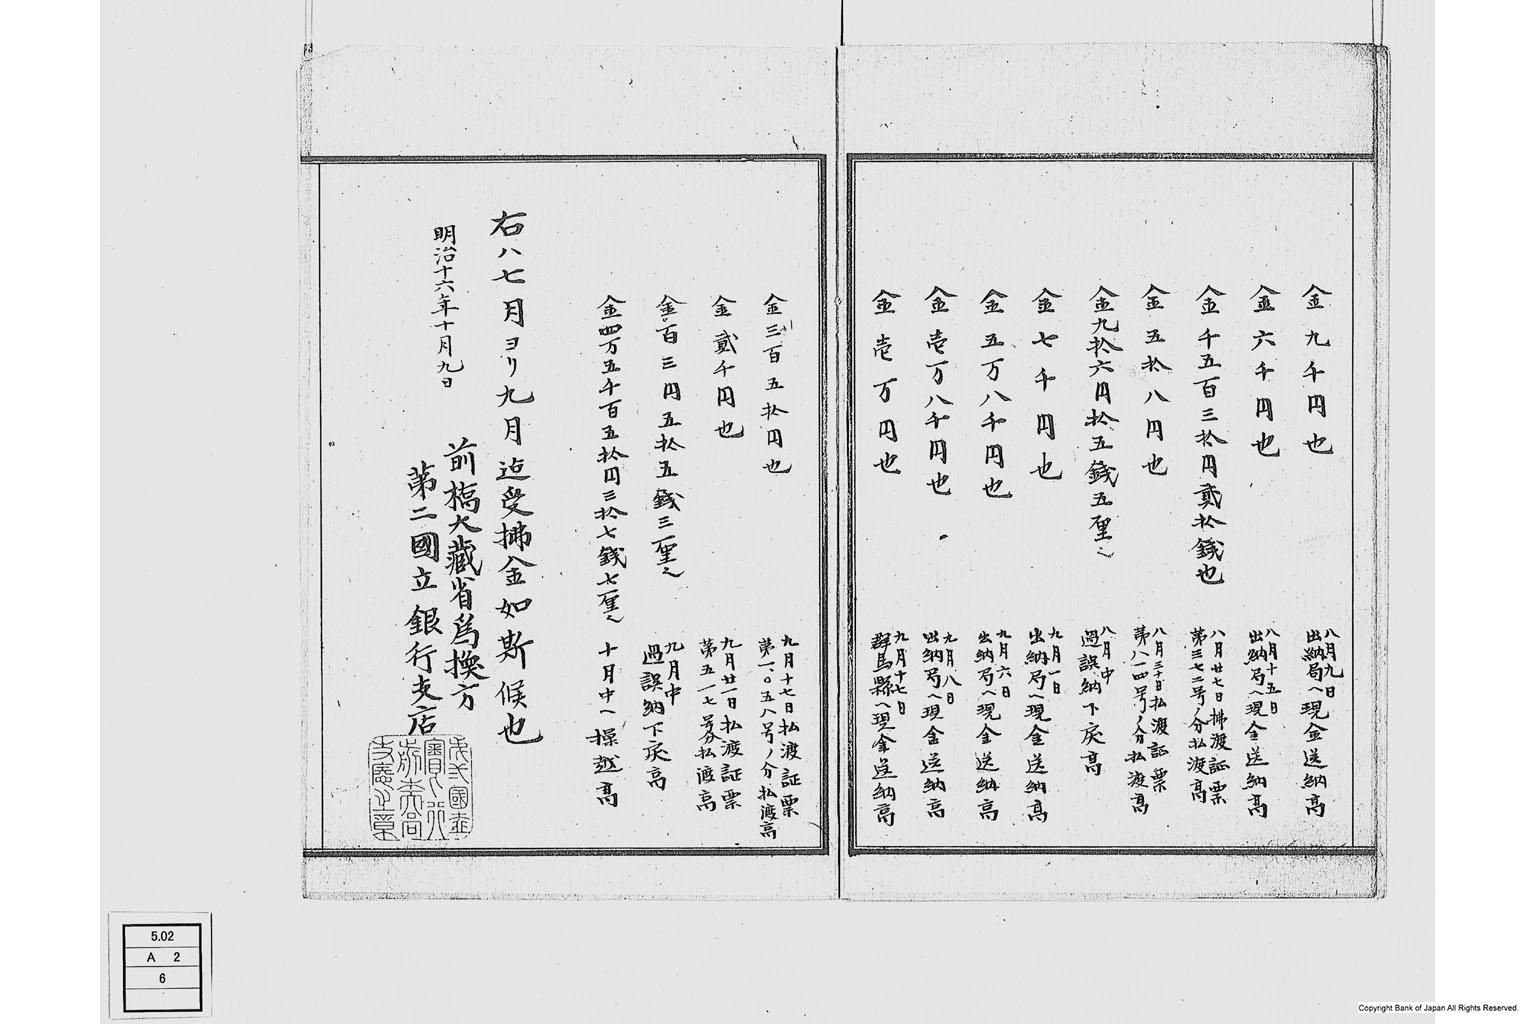 金九千円也
八月九日
出納局ヘ現金送納高
金六千円也
八月十五日
出納局ヘ現金送納高
金千五百三拾円貳拾錢也
八月廿七日拂渡証票
第三七二号ノ分払渡高
金五拾八円也
八月三十日払渡証票
第八一四号ノ分払渡高
金九拾六円拾五錢五厘也
八月中
過誤納下戻高
金七千円也
九月一日
出納局ヘ現金送納高
金五万八千円也
九月六日
出納局ヘ現金送納高
金壱万八千円也
九月八日
出納局ヘ現金送納高
金壱万円也
九月十七日
群馬縣ヘ現金送納高
金三百五拾円也
九月十七日払渡証票
第一〇五八号ノ分払渡高
金貳千円也
九月廿一日払渡証票
第五一七号分払渡高
金百三円五拾五錢三厘也
九月中
過誤納下戻高
金四万五千百五拾円三拾七錢七厘也
十月中ヘ操越高
右ハ七月ヨリ九月迠受拂金如斯候也
明治十六年十月九日
前橋大藏省為換方
第二國立銀行支店
5.02
A 2
6
Copyright Bank of Japan All Rights Reserved.